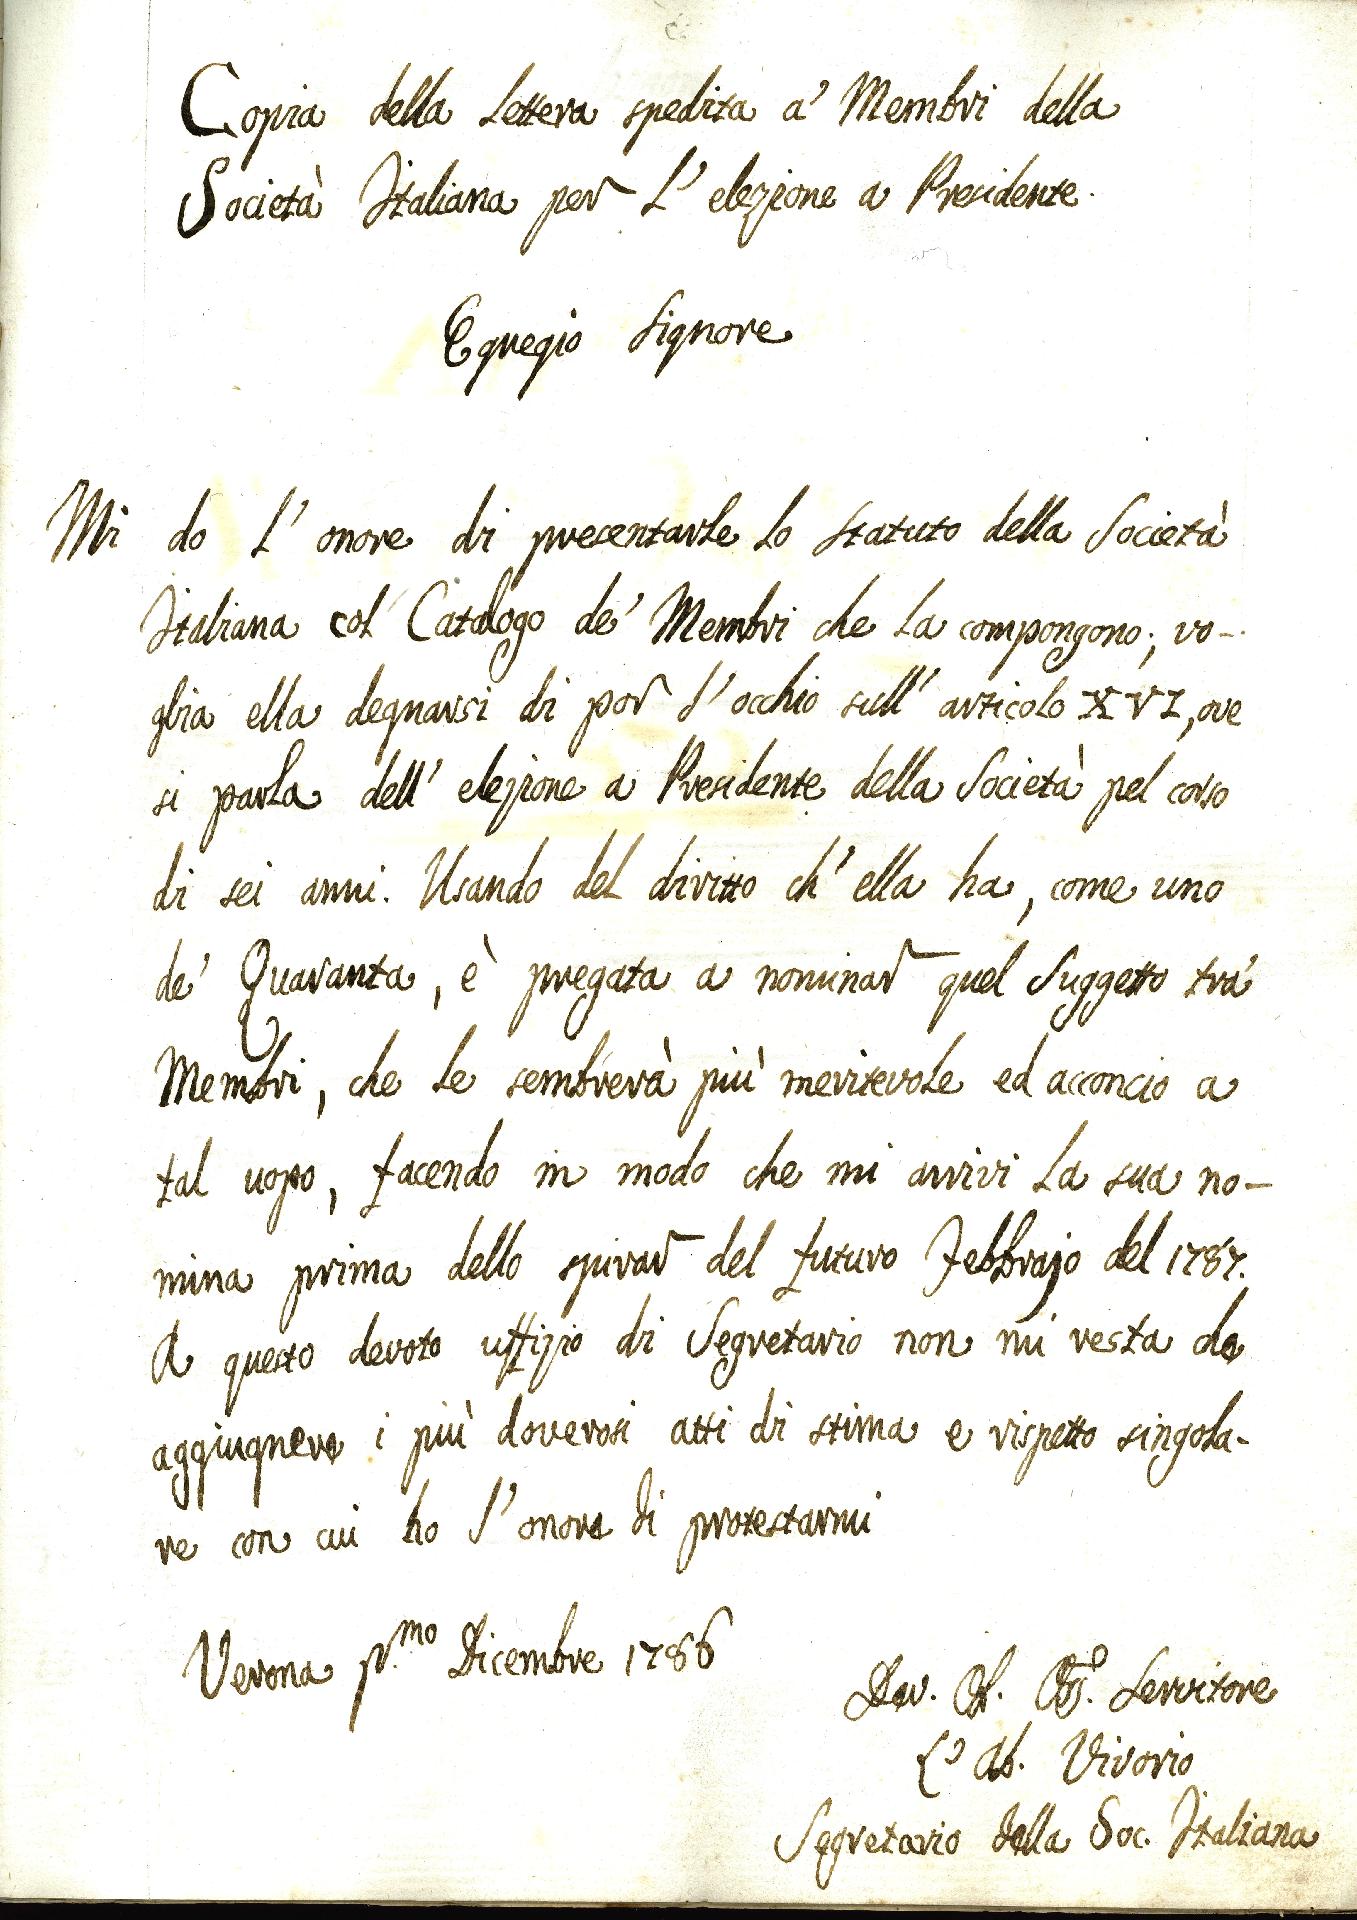 Copia della Lettera spedita a' Membri della
Società Italiana per L' elezione a Presidente.
Egregio Signore
Mi do L' onore di presentarLe Lo Statuto della Società
Italiana col Catalogo de' Membri che La compongono; vo-
glia ella degnarsi di por l'occhio sull' articolo XVI, ove
si parla dell' elezione a Presidente della Società pel corso
di sei anni. Usando del diritto ch' ella ha, come uno
de' Quaranta, è pregata a nominar quel Suggetto tra'
Membri, che Le sembrerà più meritevole ed acconcio a
tal uopo, facendo in modo che mi arrivi La sua no-
mina prima dello spirar del futuro Febbrajo del 1787.
A questo devoto uffizio di Segretario non mi resta da
aggiugnere i più doverosi atti di stima e rispetto singola-
re con cui ho l'onore di protestarmi
Verona p.mo Dicembre 1786
Dev. Servitore
L' Ab. Vivorio
Segretario della Soc. Italiana